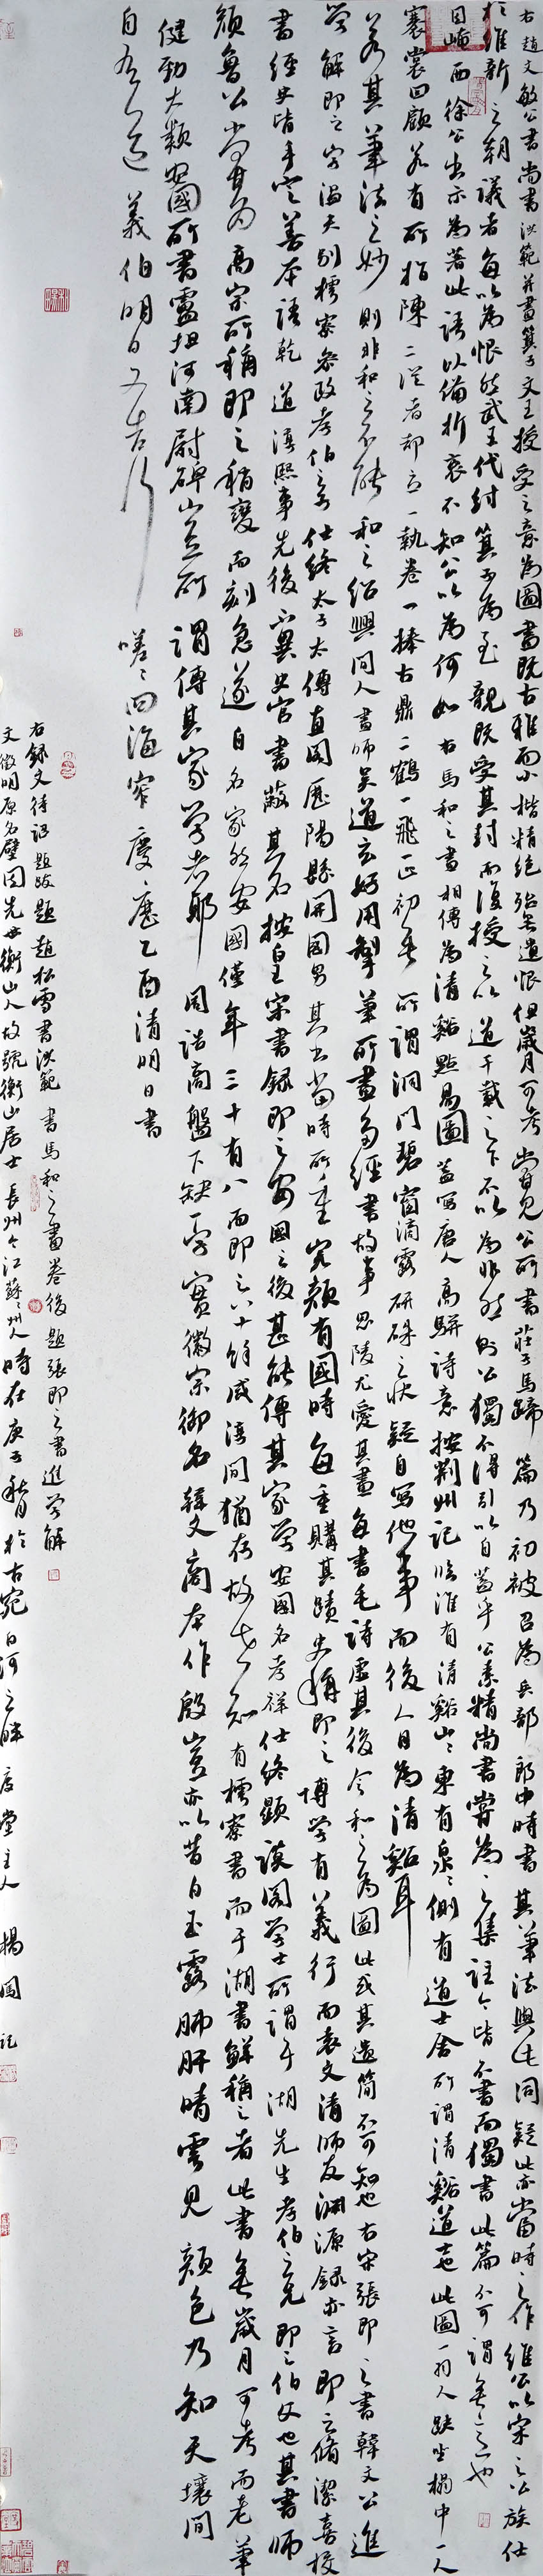 右趙文敏公書尚書洪範并畫箕子文王授受之意為圖書既古雅而小楷精絕殆無遺恨但歲月可考嘗見公所書莊子馬蹄篇乃初被召為兵部郎中時書其筆法與此同疑此亦當時之作維公以宋之公族仕
於維新之朝議者每以為恨然武王代紂箕子為至親既受其封而復授之以道千載之下不以為非然則公獨不得引以自蓋乎公素精尚書嘗為之集註今皆不書而獨書此篇不可謂無意也
因崦西徐公出示為著此語以備折衷不知公以為何如右馬和之畫相傳為清谿點易圖蓋寫唐人高駢詩意按荊州記臨淮有清谿山山東有泉泉側有道士舍所謂清谿道士也此圖一羽人趺坐榻中一人
褰裳回顧若有所指陳二從者卻立一執卷一捧古鼎二鶴一飛一正初無所謂洞門碧窗滴露研硃之狀疑自寫他事而後人目為清谿耳
若其筆法之妙則非和之不能和之紹興間人畫師吳道玄好用掣筆所畫多經書故事思陵尤愛其畫每書毛詩虛其後令和之為圖此或其遺簡不可知也右宋張即之書韓文公進
學解即之字溫夫別號樗寮參政孝伯之子仕終太子太傅直閣歷陽縣開國男其書當時所重完顏有國時每重購其蹟史稱即之博學有義行而袁文清師友淵源錄亦言即之脩潔喜校
書經史皆手定善本語乾道淳熙事先後不異史官書蔽其名按皇宋書錄即之安國之後甚能傳其家學安國名孝祥仕終顯謨閣學士所謂于湖先生孝伯之兄即之伯父也其書師
顏魯公嘗為高宗所稱即之稍變而刻急遂自名家然安國僅年三十有八而即之八十餘咸淳間猶存故世知有樗寮書而于湖書鮮稱之者此書無歲月可考而老筆
健勁大類安國所書盧坦河南尉碑豈所謂傳其家學者耶周誥商盤下缺一字實徽宗御名韓文商本作殷豈亦以昔日玉露肺肝晴雲見顏色乃知天壤間
自有人道義伯明日又告行嗟嗟四海窄慶歷乙酉清明日書
右錄文待詔題跋題趙松雪書洪範書馬和之畫卷後題張即之書進學解
文徵明原名壁因先世衡山人故號衡山居士長州今江蘇蘇州人時在庚子秋月於古宛白河之畔度堂主人楊國記